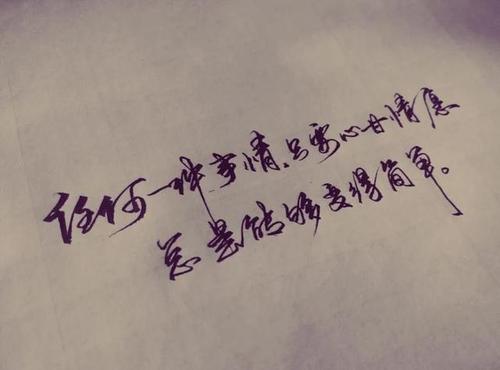 任何一件事情,只要心甘情愿
总是能够变得简单。